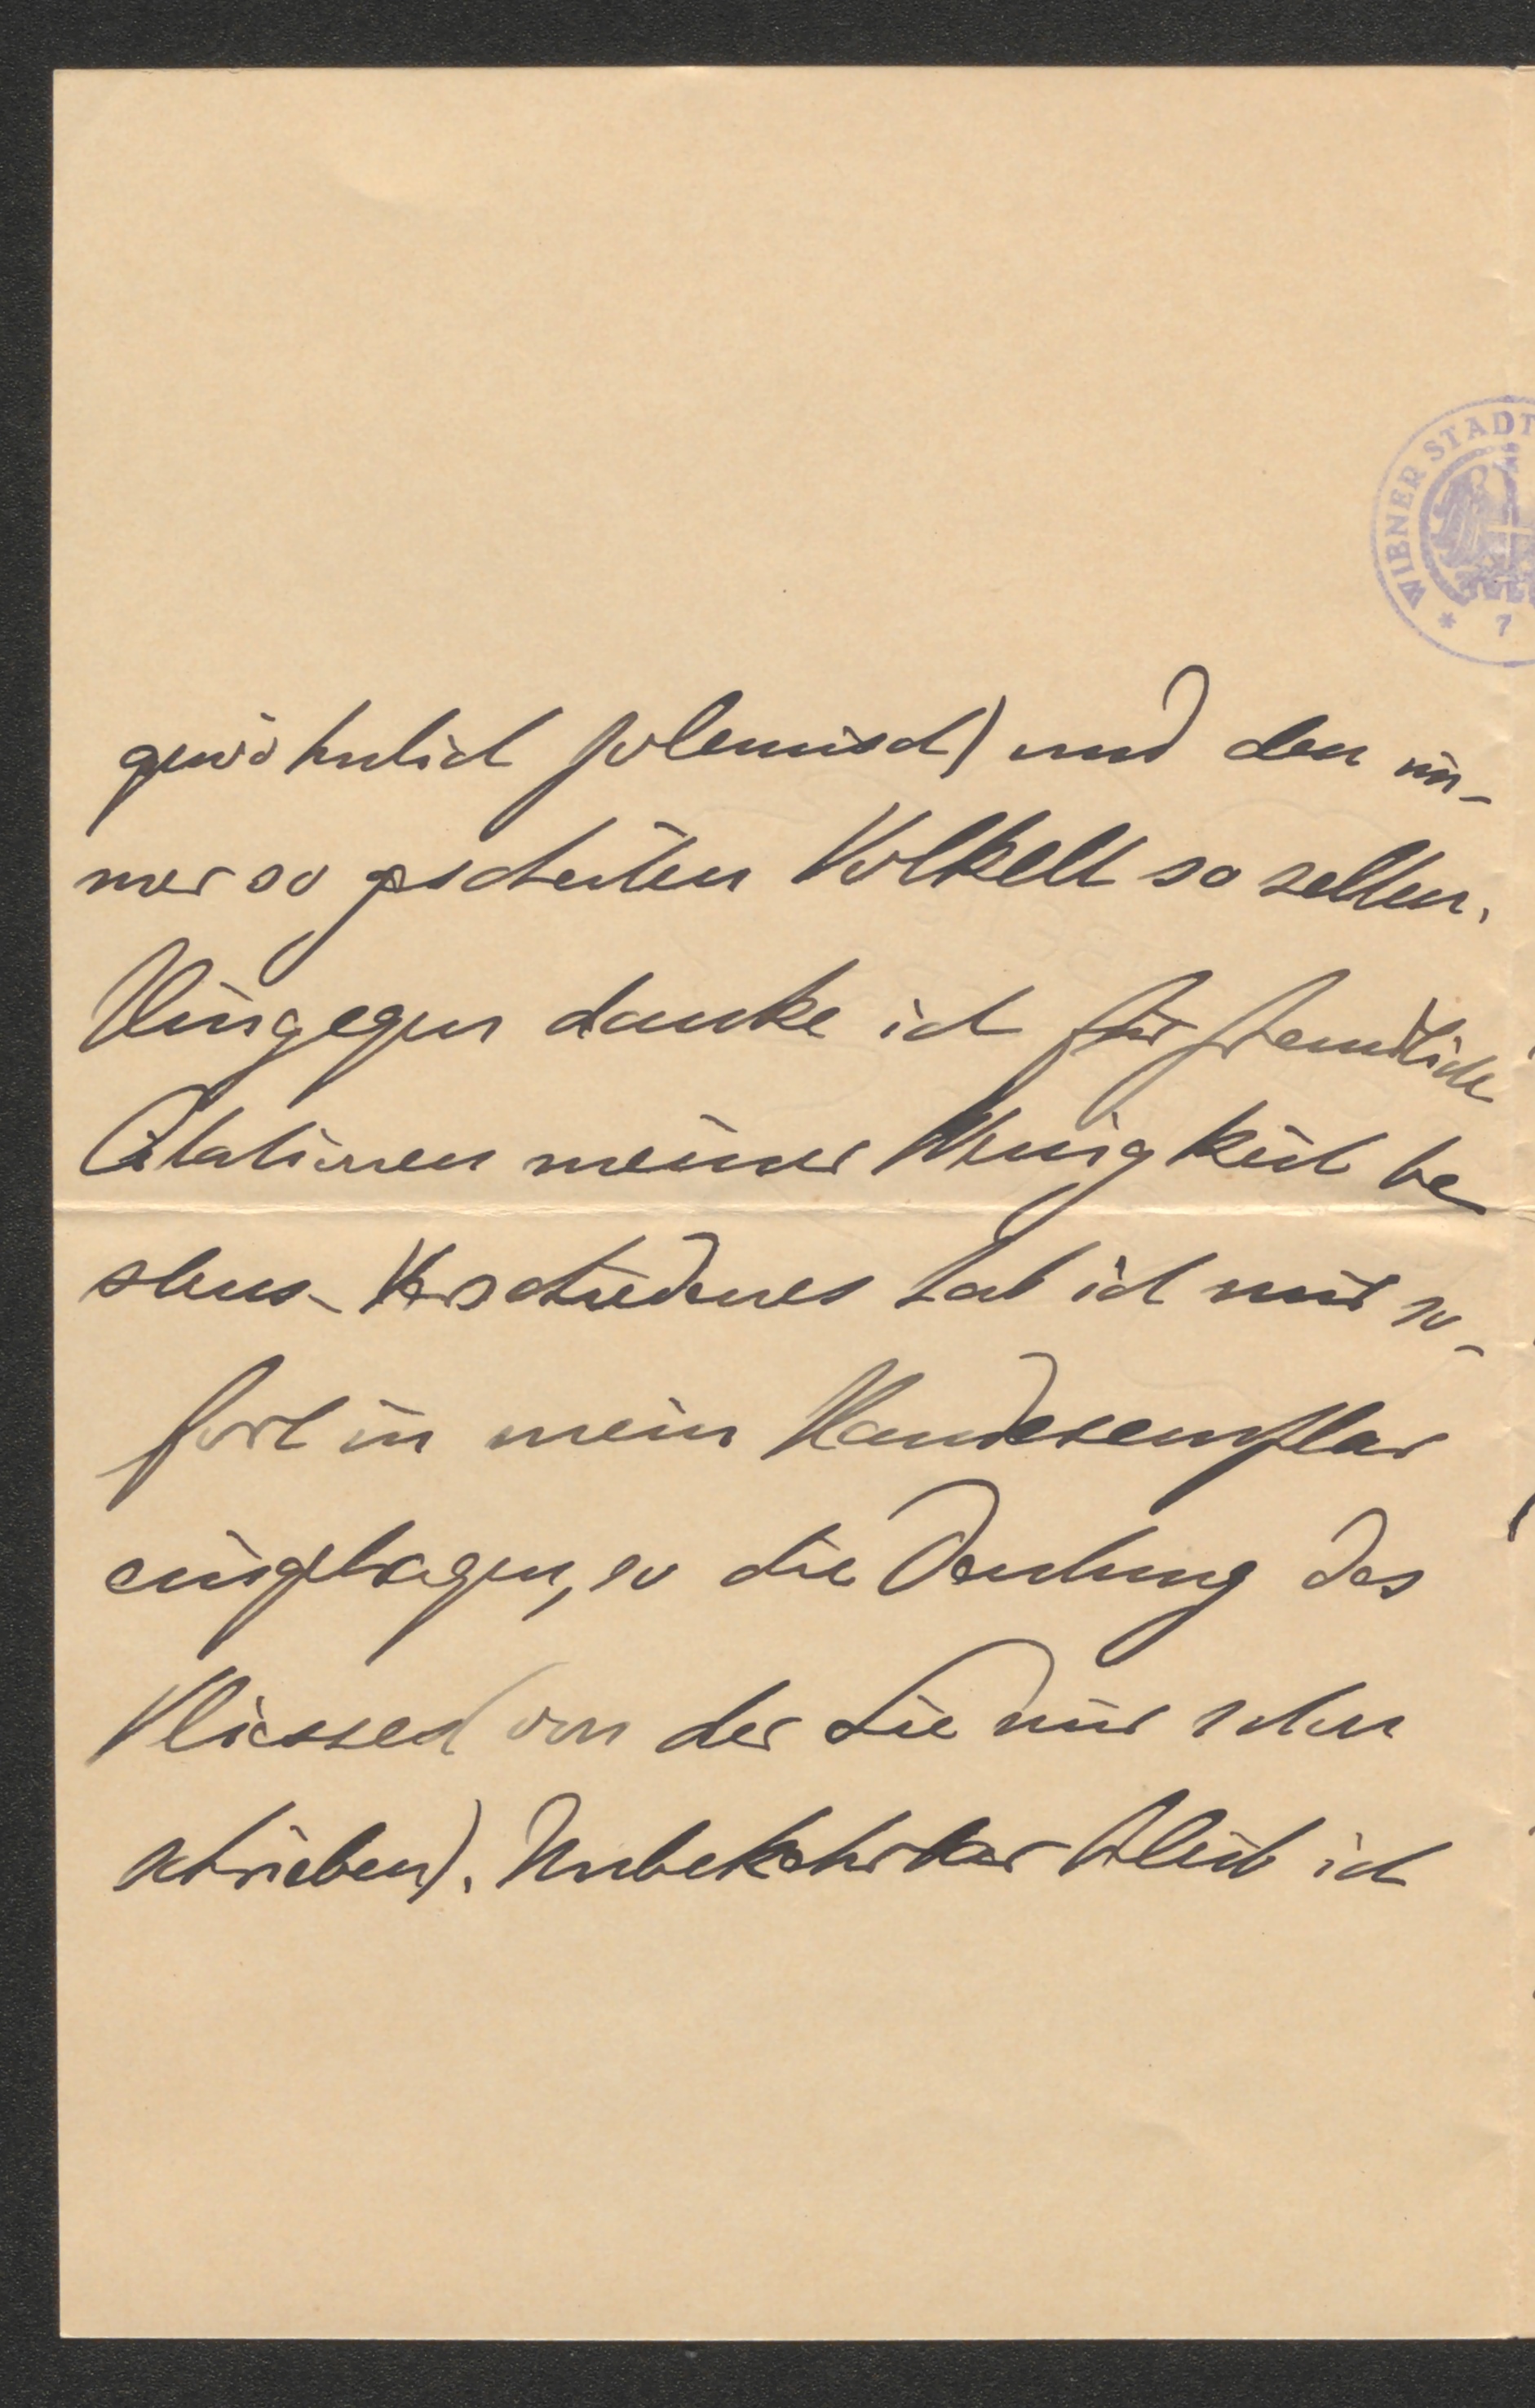 WIENER STADT
* 7
gewöhnlich polemisch) und den im-
mer so gscheiten Volkelt so selten.
Hingegen danke ich für freundliche
Citationen meiner Wenigkeit be
stens. Verschiedenes hab ich mir so-
fort in mein Handexemplar
eingetragen, so die Deutung des
Vliesses von der Sie mir schon
schrieben). Unbekehrbar bleib ich